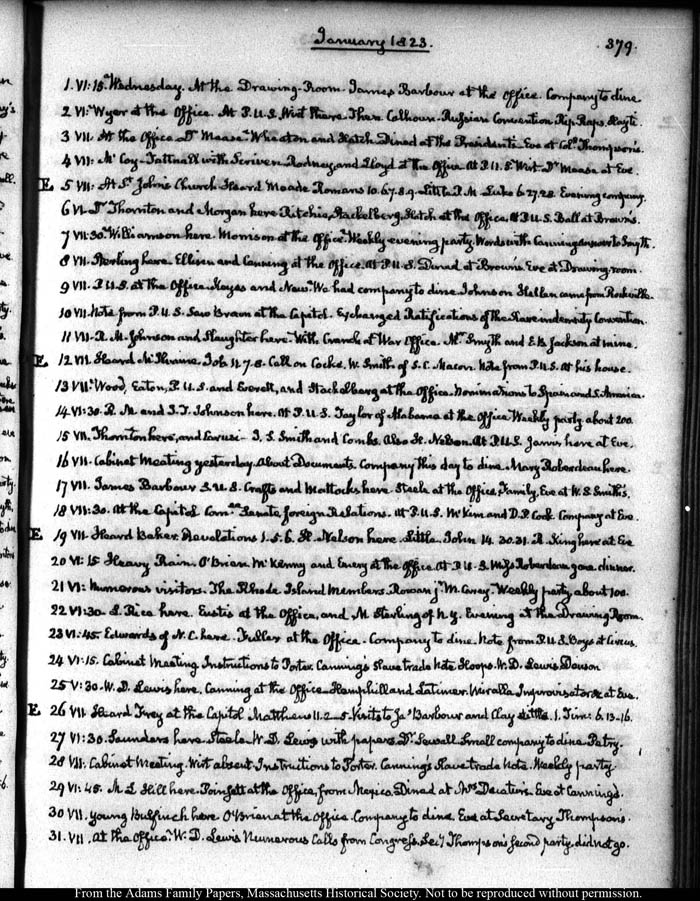 January 1823.
379.
1. VI:15. Wednesday. At the Drawing-Room. James Barbour at the Office. Company to dine
2 VI: Wyer at the Office. At P.U.S. Wirt there. There Calhoun. Russian Convention Rip Raps. Hayti.
3 VII. At the Office Dr Mease. Wheaton and Hatch. Dined at the Presidents. Eve at Col. Thompson's.
4 VII: McCoy. Tattnall with Scriven Rodney, and Lloyd at the Office At P.U.S. Wirt. Dr Mease at Eve.
E 5 VII: At St. John's Church. Heard Meade Romans 10.6.7.8.9. Little P.M. Luke 6.27.28. Evening company.
6 VI. Dr Thornton and Morgan here Ritchie, Stackelberg, Hatch at the Office, at P.U.S. Ball at Brown's.
7 VII:30. Williamson here. Morrison at the Office. Weekly evening party. Words with Canning answer to Smyth.
8 VII. Sterling here. Ellison and Canning at the Office. At P.U.S. Dined at Brown's Eve at Drawing room.
9 VII. P.U.S. at the Office. Keyes and New. We had company to dine. Johnson Hellen came from Rockville.
10 VII. Note from P.U.S. Saw Brown at the Capitol. Exchanged Ratifications of the Slave indemnity Convention.
11 VII. R.M. Johnson and Slaughter here. With Cranch at War Office. Mr Smyth and E.B. Jackson at mine.
E 12 VII. Heard McIlvaine. Job 11.7.8. Call on Cocke. W. Smith of S.C. Macon. Note from P.U.S. At his house.
13 VII. Wood, Eaton, P.U.S. and Everett, and Stackelberg at the Office. Nominations to Spain and S. America.
14 VI:30. R.M. and J.T. Johnson here. At P.U.S. Taylor of Alabama at the Office Weekly party about 200.
15 VII. Thornton here, and J.S. Smith and Combs. Also H. Nelson. At P.U.S. Jarvis here at Eve.
16 VII. Cabinet Meeting yesterday. About Documents. Company this day to dine. Mary Roberdeau here.
17 VII. James Barbour S.U.S. Crafts and Mattocks here. Steele at the Office, Family, Eve at W.S. Smith's.
18 VII:30. At the Capitol. Comee. Senate foreign Relations. At P.U.S. McKim and D.P. Cook. Company at Eve.
E 19 VII. Heard Baker. Revelations 1.5.6. H. Nelson here. Little. John 14.30.31. R. King here at Eve
20 VI:15 Heavy Rain. O'Brien. McKenny and Emery at the Office. At P.U.S. Miss Roberdeau gone. dinner.
21 VI: Numerous visitors. The Rhode Island Members. Rowan jr. M. Carey. Weekly party about 100.
22 VI:30. L. Rice here. Eustis at the Office, and M Sterling of N.Y. Evening at the Drawing Room.
23 VI:45. Edwards of N.C. here. Fuller at the Office. Company to dine. Note from P.U.S. Boys at Circus.
24 VI:15. Cabinet Meeting Instructions to Porter. Canning's Slave trade Note. Hoops. W.D. Lewis
25 V:30. W.D. Lewis here. Canning at the Office. Hemphill and Latimer. Improvisatore at Eve.
E 26 VII. Heard Frey at the Capitol Matthew 11.2-5. Visits to Jas Barbour and Clay. Little. 1. Tim: 6.13-16.
27 VI:30. Saunders here. Steele. W.D. Lewis with papers. Dr Sewall. Small company to dine. Petry.
28 VII. Cabinet Meeting. Wirt absent. Instructions to Porter. Canning's Slave trade Note. Weekly party
29 VI:45. M.L. Hill here. Poinsett at the Office, from Mexico. Dined at Mrs Decatur's. Eve at Canning's.
30 VII. Young Bulfinch here. O'Brien at the Office. Company to dine. Eve at Secretary Thompson's.
31. VII. At the Office. W.D. Lewis Numerous Calls from Congress. Secy Thompson's second party. did not go.
From the Adams Family Papers, Massachusetts Historical Society. Not to be reproduced without permission.